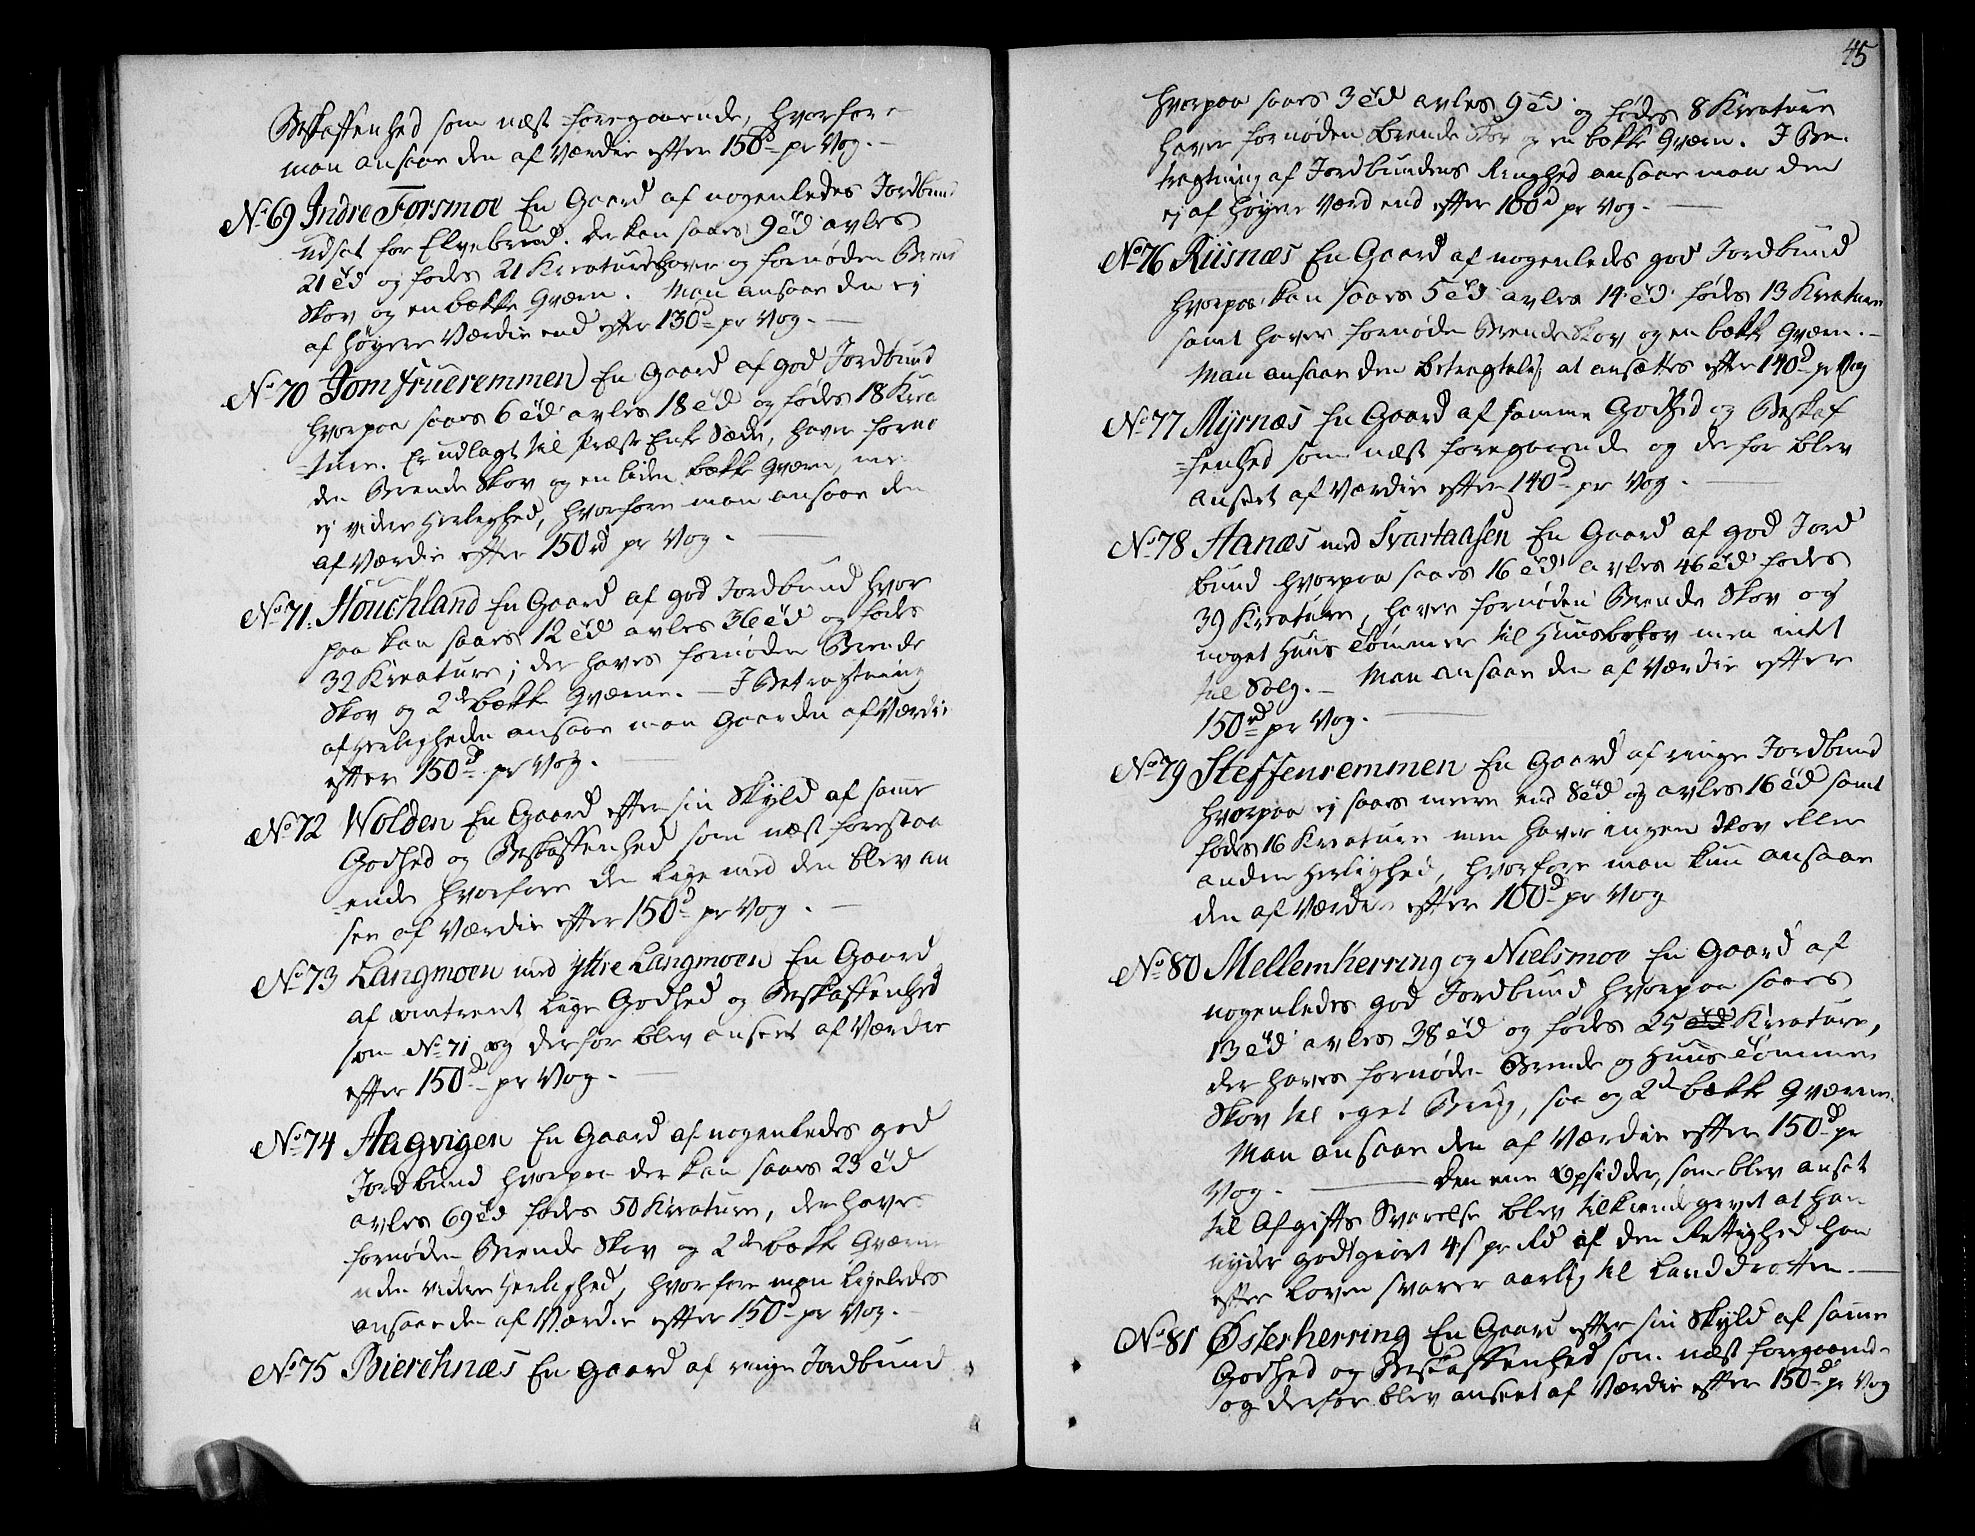 Beskaffenhed som næst foregaaende, hvorfore
man ansaae den af Værdie efter 150d pr Vog. —
No 69 Indre Forsmoe En Gaard af nogenledes Jordbund
udsat for Elvebrud. Der kan saaes 9 öd avles
21 öd og födes 21 Kreature haver og fornöden Brende
Skov og en bække Qværn. Man ansaae den ej
af höyere Værdie end efter 130d pr Vog. —
No 70 Jomfrueremmen En Gaard af god Jordbund
hvorpaa saaes 6 öd avles 18 öd og födes 18 Krea
-ture. Er udlagt til Præste Enke Sæde, haver fornö
den Brende Skov og en liden bække Qværn, men
ej videre Herlighed, hvorfore man ansaae den
af Værdie efter 150rd pr Vog. —
No 71. Houchland En Gaard af god Jordbund hvor
paa kan saaes 12 öd avles 36 öd og födes
32 Kreature; der haves fornöden Brende
Skov og 2de bække Qværne. — I Betragtning
af Herligheden ansaae man Gaarden af Værdie
efter 150d pr Vog. —
No 72 Wolden En Gaard efter sin Skyld af samme
Godhed og Beskaffenhed som næst forestaa
-ende hvorfore den lige med den blev an
seet af Værdie efter 150d pr Vog. —
No 73 Langmoen med ÿttre Langmoen En Gaard
af omtrent lige Godhed og Beskaffenhed
som No 71 og derfor blev anseet af Værdie
efter 150d pr Vog. —
No 74 Aagvigen En Gaard af nogenledes god
Jordbund hvorpaa der kan saaes 23 öd
avles 69 öd födes 50 Kreature, der haves
fornöden Brende Skov og 2de bække Qværne
uden videre Herlighed, hvorfore man ligeledes
ansaae den af Værdie efter 150d pr Vog. —
No 75 Bierchnæs En Gaard af ringe Jordbund
45
hvorpaa saaes 3 öd avles 9 öd og födes 8 Kreature
haver fornöden Brende Skov og en bække Qværn. I Be-
tragtning af Jordbundens Ringhed ansaae man den
ej af höyere Værd end efter 100d pr Vog. —
No 76 Riisnæs En Gaard af nogenledes god Jordbund
hvorpaa kan saaes 5 öd avles 14 öd födes 13 Kreature
samt haver fornöden Brende Skov og en bække Qværn. —
Man ansaae den betragtelig at ansættes efter 140d pr Vog
No 77 Myrnæs En Gaard af samme Godhed og Beskaf
-fenhed som næst foregaaende og derfor blev
anseet af Værdie efter 140d pr Vog. —
No 78 Hanæs med Svartaasen En Gaard af god Jord
bund hvorpaa saaes 16 öd avles 46 öd födes
39 Kreature, haver fornöden Brende Skov og
noget Huus Tömmer til Huusbehov men intet
til Salg. — Man ansaae den af Værdie efter
150rd pr Vog. —
No 79 Steffenremmen En Gaard af ringe Jordbund
hvorpaa ej saaes meere end 8 öd og avles 16 öd samt
födes 16 Kreature men haver ingen Skov eller
anden Herlighed, hvorfore man kun ansaae
den af Værdie efter 100d pr Vog
No 80 Mellemherring og Nielsmoe En Gaard af
nogenledes god Jordbund hvorpaa saaes
13 öd avles 38 öd og födes 25 öd Kreature,
der haves fornöden Brende og Huus Tömmer
Skov til eget Brug, saa og 2de bække Qværne.
Man ansaae den af Værdie efter 150d pr
Vog. — Den ene Opsidder, som blev ansat
til Afgifts Svarelse blev tilkiendegivet at han
nyder godtgiort 4s pr Rd af den Rettighed han
efter Loven svarer aarlig til Landdrotten. —
No 81 Österherring En Gaard efter sin Skyld af samme
Godhed og Beskaffenhed som næst foregaaende
og derfor blev anseet af Værdie efter 150d pr Vog